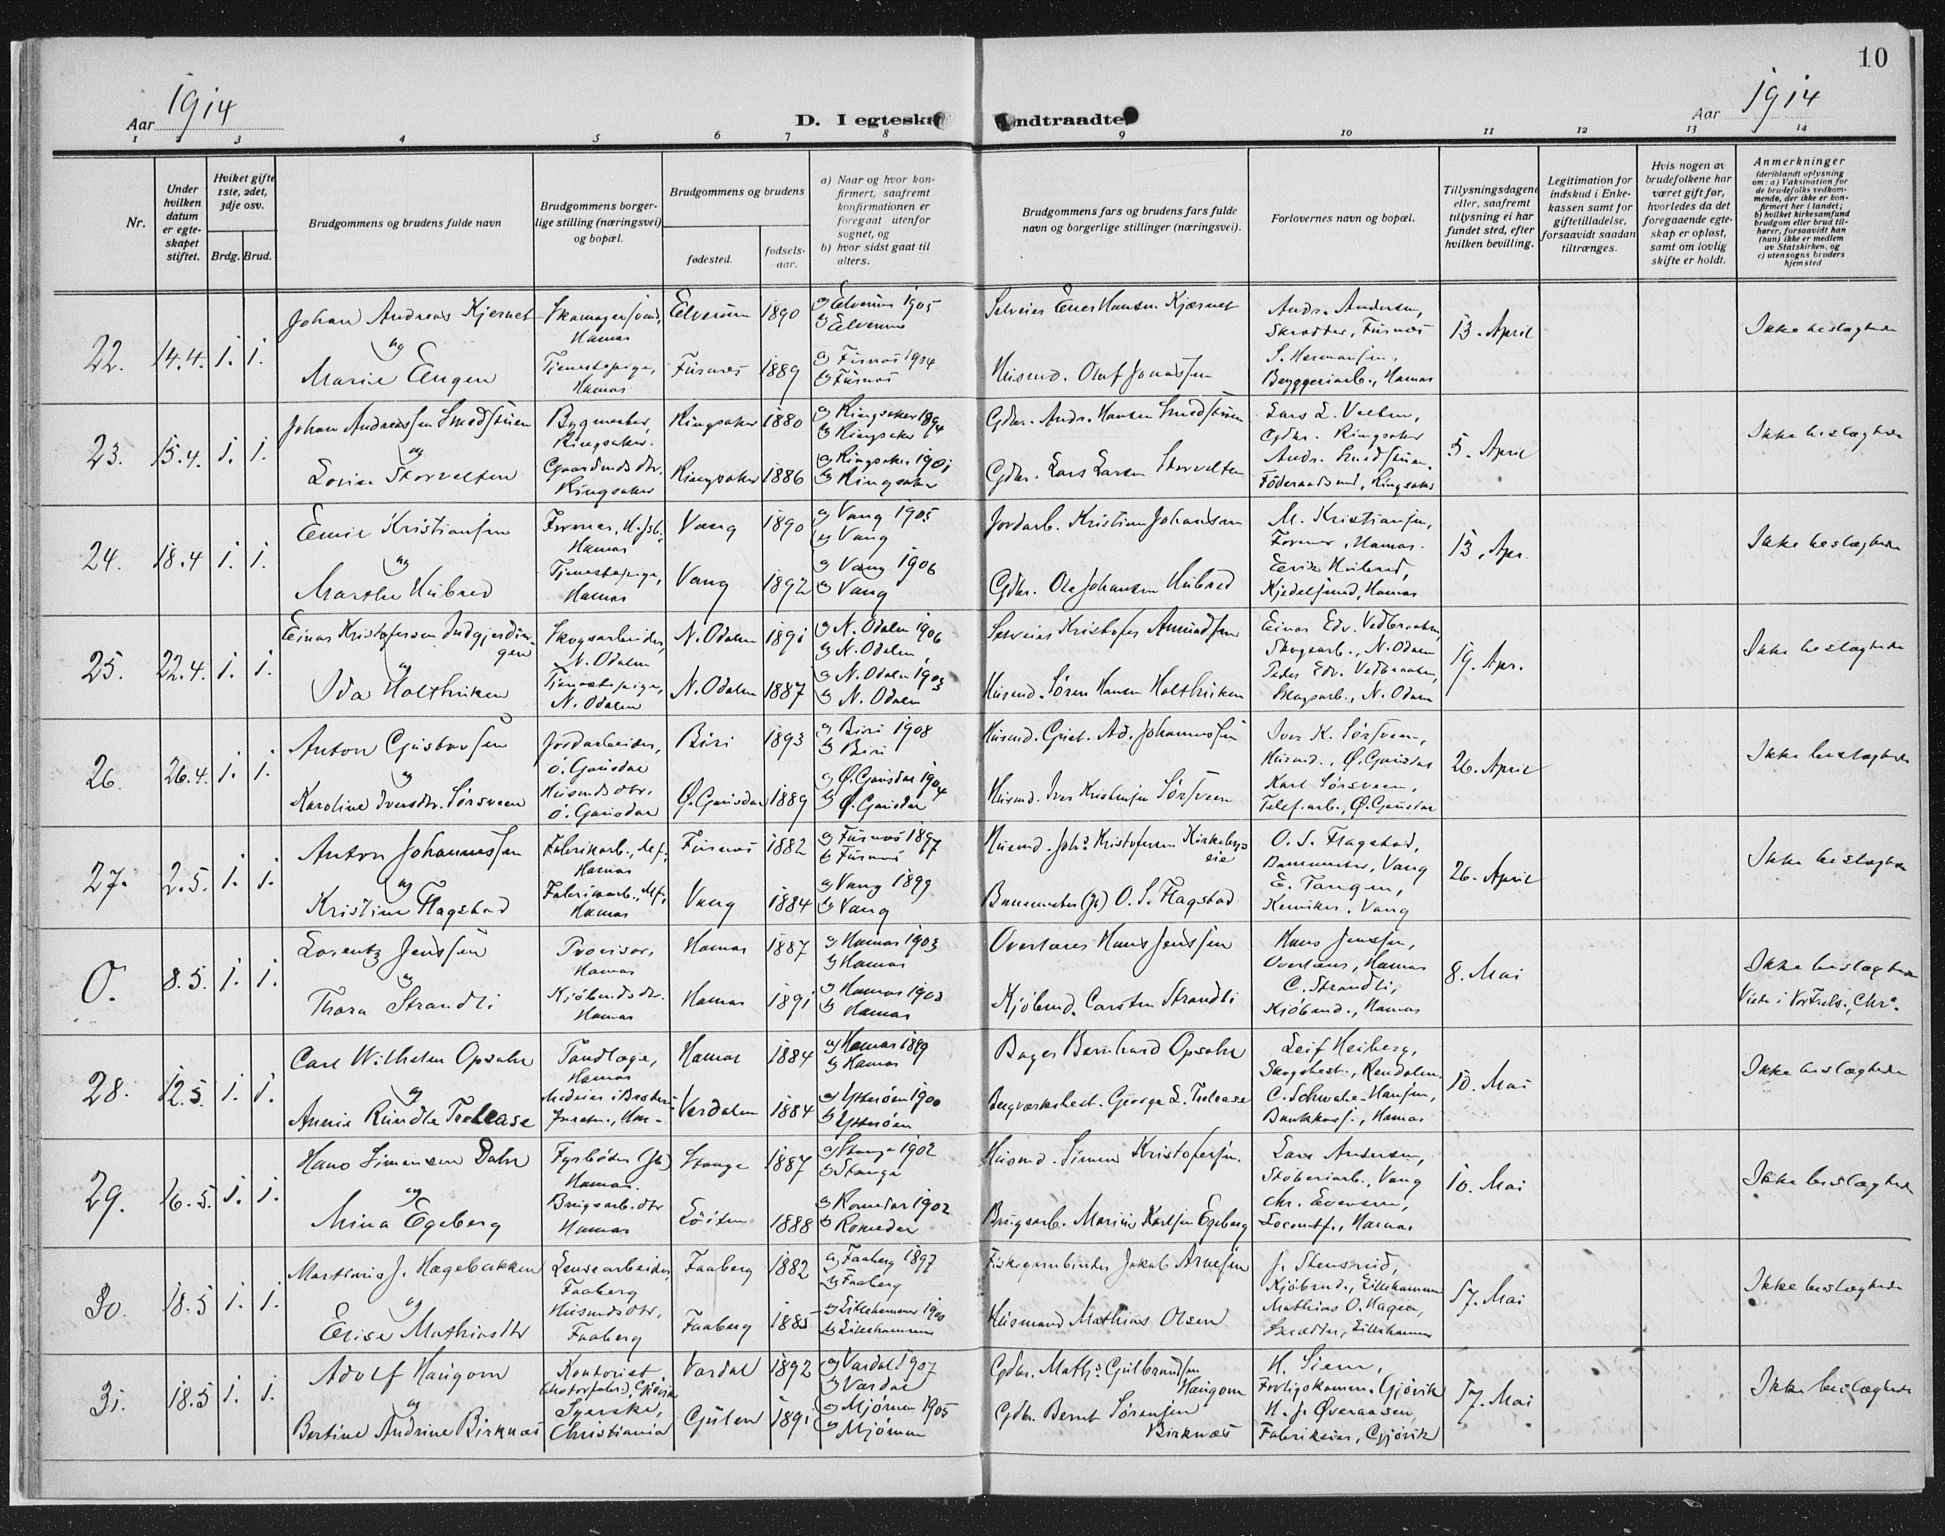 10
Aar 1914
D. I egteska
ndtraadte.
Aar 1914
1 2 3 4 5 6 7 8 9 10 11 12 13 14
Nr.
Under hvilken datum er egteskapet stiftet.
Hviket gifte 1ste, 2det, 3dje osv.
Brdg. Brud.
Brudgommens og brudens fulde navn
Brudgommens borgerlige stilling (næringsvei) og bopæl.
Brudgommens og brudens
fødested.
fødsels-aar.
a) Naar og hvor konfirmert, saafremt konfirmationen er foregaat utenfor sognet, og
b) hvor sidst gaat til alters.
Brudgommens fars og brudens fars fulde navn og borgerlige stillinger (næringsvei).
Forlovernes navn og bopæl.
Tillysningsdagene eller, saafremt tilysning ei har fundet sted, efter hvilken bevilling.
Legitimation for indskud i Enkekassen samt for giftetilladelse, forsaavidt saadan tiltrænges.
Hvis nogen av brudefolkene har været gift før, hvorledes da det foregaaende egteskap er opløst, samt om lovlig skifte er holdt.
Anmerkninger
(deriblandt oplysning om: a) Vaksination for de brudefolks vedkommende, der ikke er konfirmert her i landet; b) hvilket kirkesamfund brudgom eller brud tilhører, forsaavidt han (hun) ikke er medlem av Statskirken, og c) utensogns bruders hjemsted
22. 14.4. 1. 1. Johan Andreas Kjernet Hamar Elverum 1890 a) Elverum 1905 b) Elverum
og
Marie Engen Tjenestepige, Hamar Furnes 1889 a) Furnes 1904 b) Furnes
Selveier Hansen Kjærnet
Husmd. Oluf Jonassen
Andr. Andersen, Skrædder, Furnes
S. Hermansen, Bryggeriarb., Hamar
13. April
Ikke beslægtede
23. 15.4. 1. 1. Johan Andreassen Smedstuen Bygmester, Ringsaker. Ringsaker 1880 a) Ringsaker 1894 b) Ringsaker
og
Lovise Storvelten Gaardmdsdtr. Ringsaker Ringsaker 1886 a) Ringsaker 1901 b) Ringsaker
Gdbr. Andr. Hansen Smedstuen
Gdbr. Lars Larsen Storvelten
Lars L. Velten, Gdbr. Ringsaker
Andr. Smedstuen. Föderaadsmd, Ringsaker
5. April
Ikke beslægtede
24. 18.4 1. 1. Emil Kristiansen Former, Hamar Vang 1890 a) Vang 1905 b) Vang
og
Marthe Hubred Tjenestepige, Hamar Vang 1892 a) Vang 1906 b) Vang
Jordarb. Kristian Johansen
Gdbr. Ole Johansen Hubred
M. Kristiansen, Former, Hamar.
Erik Hubred, Kjedelsmed, Hamar
13. Apr.
Ikke beslægtede
25. 22.4. 1. 1. Einar Kristofersen Indgjerdingen Skogsarbeider, N. Odalen N. Odalen 1891 a) N. Odalen 1906 b) N. Odalen
og
Ida Holthviken Tjenestepige, N. Odalen N. Odalen 1887 a) N. Odalen 1903 b) N. Odalen
Selveier Kristofer Amundsen
Husmd. Søren Hansen Holthviken
Einar Edv. Vedbraaten, Skogsarb., N. Odalen
Peder Edv. Vedbraaten, Skogsarb., N. Odalen
19. Apr.
Ikke beslægtede
26. 26.4. 1. 1. Anton Gustavsen Jordarbeider, Ö. Gausdal Biri 1893 a) Biri 1908 b) Biri
og
Karoline Iversdtr. Sørsveen Husmdsdtr. Ö. Gausdal Ø. Gausdal 1889 a) Ø. Gausdal 1904 b) Ø. Gausdal
Husmd. Gust. Ad. Johannessen
Husmd. Iver Kristensen Sørsveen
Iver K. Sørsveen, Husmd., Ø. Gausdal
Karl Sørsveen, Telef.arb., Ø. Gausdal
26. April
Ikke beslægtede
27. 2.5. 1. 1. Anton Johannessen Fabrikarb., Hamar Furnes 1882 a) Furnes 1897 b) Furnes
og
Kristine Flagstad Fabrikarb., Hamar Vang 1884 a) Vang 1899 b) Vang
Husmd. Johs. Kristofersen Kirkebyseie
Banemester (Jb) O. S. Flagstad
O. S. Flagstad, Banemester, Vang
E. Tangen, Kemiker, Vang
26. April
Ikke beslægtede
0. 8.5. 1. 1. Lorentz Jenssen Provisor, Hamar Hamar 1887 a) Hamar 1903 b) Hamar
og
Thora Strandli Kjöbmdsdtr. Hamar Hamar 1891 a) Hamar 1903 b) Hamar
Overlærer Hans Jenssen
Kjöbmd. Carsten Strandli
Hans Jenssen, Overlærer, Hamar
C. Strandli, Kjöbmd., Hamar
8. Mai
Ikke beslægtede
Viede i Vor Frels., Chra.
28. 12.5. 1. 1. Carl Wilhelm Opsahl Tandlæge, Hamar Hamar 1884 a) Hamar 1899 b) Hamar
og
Annie Rundle Trelease Verdalen 1884 a) Ytterøen 1900 b) Ytterøen
Bager Bernhard Opsahl
Bergværksbest. George S. Trelease
Leif Heiberg, Skogbest., Rendalen.
C. Schwabe-Hansen, Bankkass., Hamar
10. Mai
Ikke beslægtede
29. 16.5. 1. 1. Hans Simensen Dahl Fyrbøder (Jb) Hamar. Stange 1887 a) Stange 1902 b) Stange
og
Mina Egeberg Brugsarb.dtr Hamar Löiten 1888 a) Romedal 1902 b) Romedal
Husmd. Simen Kristofersen.
Brugsarb. Marius Karlsen Egeberg
Lars Andersen, Støberiarb., Vang
Chr. Evensen, Locomtf., Hamar
10. Mai
Ikke beslægtede
30. 18.5 1. 1. Martinus J. Hagebakken Lensearbeider, Faaberg Faaberg 1882 a) Faaberg 1897 b) Faaberg
og
Elise Mathiasdtr Husmdsdtr, Faaberg Faaberg 1885 a) Lillehammer 1900 b) Lillehammer
Fiskegarnbinder Jakob Arnesen
Husmand Mathias Olsen
J. Stensrud, Kjöbmd., Lillehammer
Mathias O. Hagen, Skrædder, Lillehammer
17. Mai
Ikke beslægtede
31. 18.5 1. 1. Adolf Haugom Kontorist Gjövik Vardal 1892 a) Vardal 1907 b) Vardal
og
Bertine Andrine Birknæs Syerske, Christiania Gulen 1891 a) Mjömen 1905 b) Mjömen
Gdbr. Maths. Gulbrandsen Haugom
Gdbr. Bernt Sörensen Birknæs
H. Siem, Forligskomm. Gjövik
H. J. Øveraasen, Fabrikeier, Gjövik
17. Mai
Ikke beslægtede